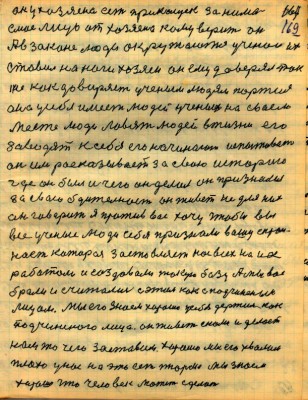 он у хозяена сет приконцук за нима
168
169
силое лицо от хозяена кому верит он
Я в законе люди окружаются ученои их
ставил на ноги хозяен он ему доверял так
же как доверяет ученым людям партия
она у себя имеет людей ученых на своем
месте люди ловят людей в тизни его
заводят к себе его начинают испытовает
он им расказывает за свою историю
где он был и чего он делал он признался
за свою бдительност он живет не для них
он говорит я против вас хочу чтобы вы
все ученые люди себя признали вашу
каторая заставляет на всех на их
работат и создовали только базу А мы вас
брали и считали с этим как с подчиненным
лицам. мы его знаем хорошо у себя держим как
подчиненого лица. он живет с нами и делает
нам то чего заставим. Хорошо мы его хвалим
плохо у нас на это ест тормо мы знаем
хорошо что человек может сделат